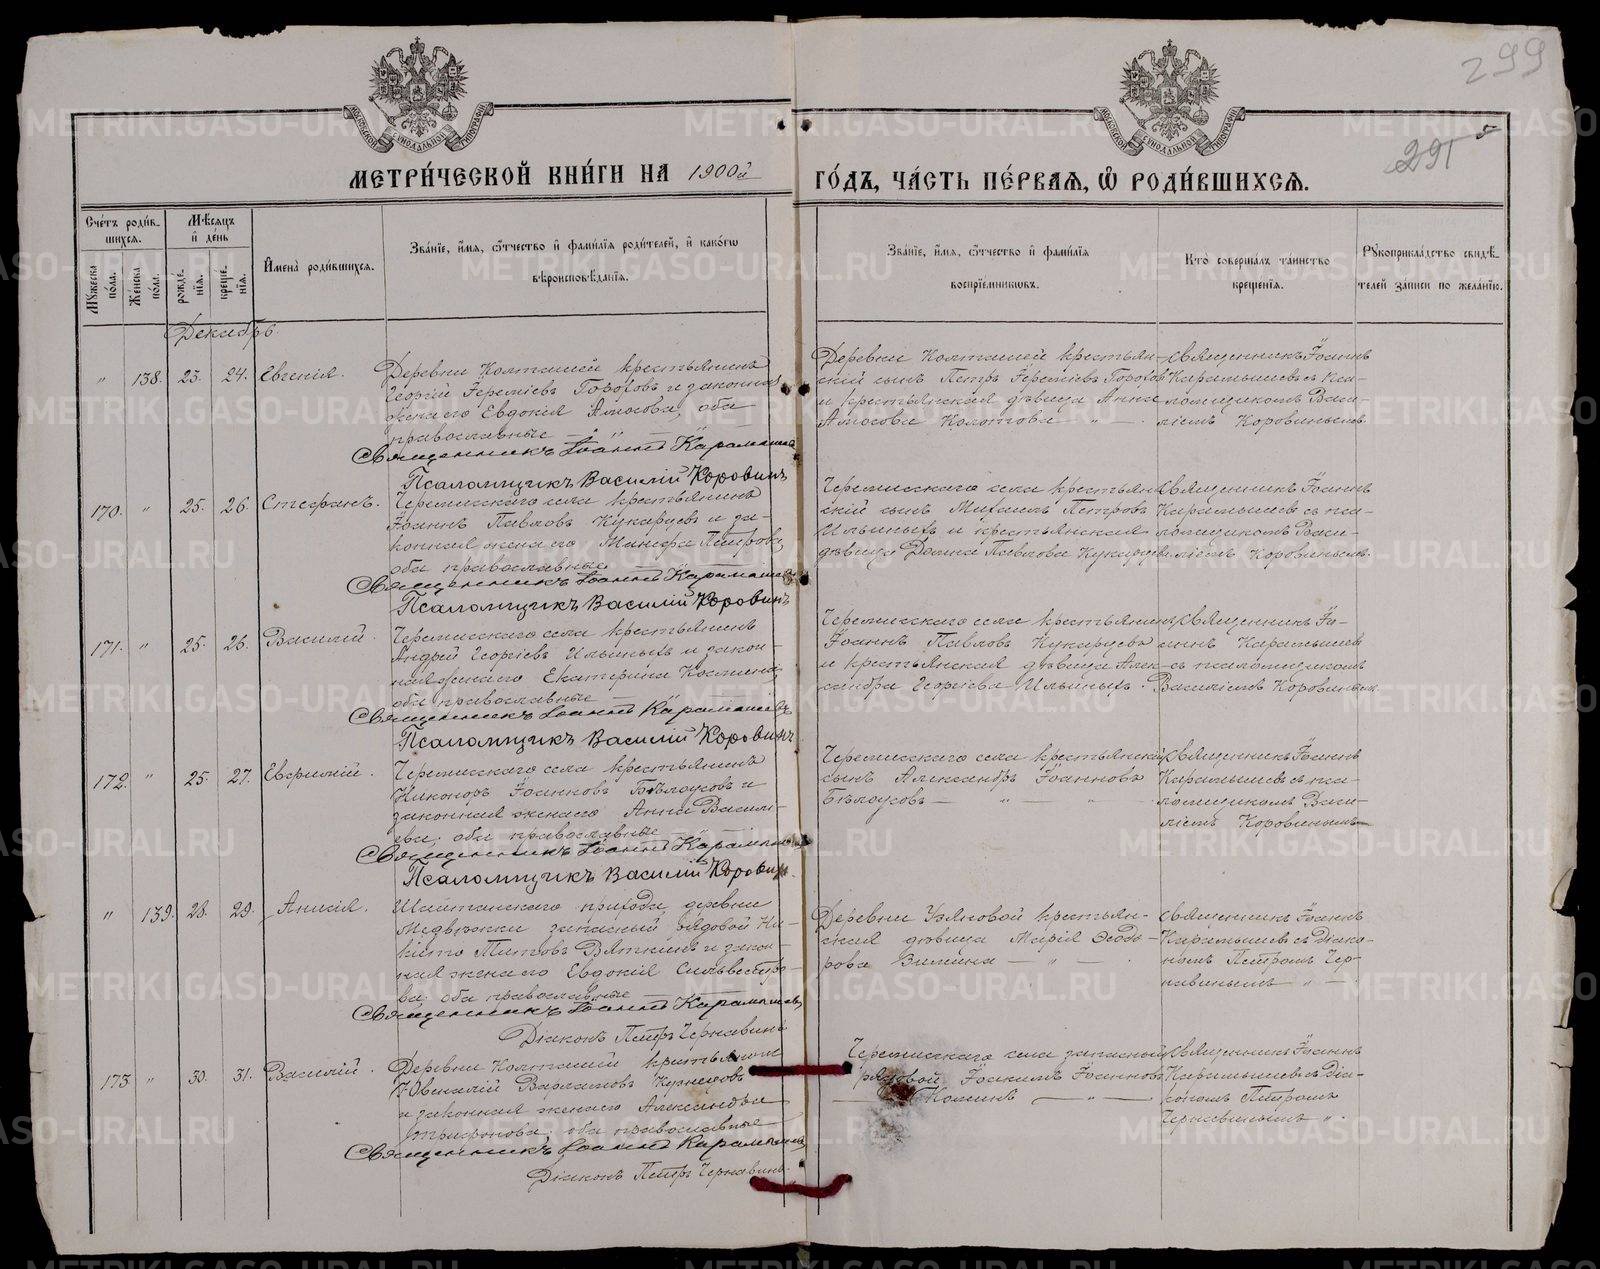 299
291
МЕТРИ́ЧЕСКОЙ КНИ́ГИ НА 1900й ГО́ДЪ, ЧА́СТЬ ПЕ́РВАЯ, Ѡ РОДИ́ВШИХСЯ.
Сче́тъ роди́в-
шихся.
Мꙋжеска по́ла.
Же́нска по́ла.
Мѣ́сяцъ и҆ де́нь
рожде́-нїя.
креще́-нїя.
И҆мена̀ роди́вшихся.
Зва́нїе, и҆́мя, ѻ҆́тчество и҆ фами́лїя роди́телей, и҆ како́гѡ
вѣроисповѣ́данїя.
Зва́нїе, и҆́мя, ѻ҆́тчество и҆ фами́лїя
воспрїе́мниковъ.
Кто̀ соверша́лъ та́инство
креще́нїя.
Рꙋкоприкла́дство свидѣ́-
телей за́писи по жела́нїю.
Декабрь.
" 138. 23. 24. Евгенія.
Деревни Колташей крестьянинъ
Георгій Іереміевъ Гороховъ и законная
жена его Евдокія Амосова, оба
православные
Священникъ Іоаннъ Карамышевъ
Псаломщикъ Василій Коровинъ
Деревни Колташей крестьян-
скій сынъ Петръ Іереміевъ Гороховъ
и крестьянская дѣвица Анна
Амосова Колотова
Священникъ Іоаннъ
Карамышевъ съ пса-
ломщикомъ Васи-
ліемъ Коровинымъ
170. " 25. 26. Стефанъ.
Черемисскаго села крестьянинъ
Іоаннъ Павловъ Кукарцевъ и за-
конная жена его Манефа Петрова,
оба православные
Священникъ Іоаннъ Карамышевъ
Псаломщикъ Василій Коровинъ
Черемисскаго села крестьян-
скій сынъ Михаилъ Петровъ
Ильиныхъ и крестьянская
дѣвица Павлова Кукарцева
Священникъ Іоаннъ
Карамышевъ съ пса-
ломщикомъ Васи-
ліемъ Коровинымъ.
171. " 25. 26. Василій.
Черемисскаго села крестьянинъ
Андрей Георгіевъ Ильиныхъ и закон-
ная жена его Екатерина
оба православные
Священникъ Іоаннъ Карамышевъ
Псаломщикъ Василій Коровинъ
Черемисскаго села крестьянинъ
Іоаннъ Павловъ Кукарцевъ
и крестьянская дѣвица Алек-
сандра Георгіева Ильиныхъ.
Священникъ Іо-
аннъ Карамышевъ
съ псаломщикомъ
Василіемъ Коровинымъ
172. " 25. 27. Евфимій.
Черемисскаго села крестьянинъ
Никоноръ Іоанновъ Бѣлоусовъ и
законная жена его Анна Василь-
ева, оба православные
Священникъ Іоаннъ Карамышевъ
Псаломщикъ Василій Коровинъ.
Черемисскаго села крестьянскій
сынъ Александръ Іоанновъ
Бѣлоусовъ
Священникъ Іоаннъ
Карамышевъ съ пса-
ломщикомъ Васи-
ліемъ Коровинымъ
" 139. 28. 29. Анисія.
Шайтанскаго прихода, деревни
запасный рядовой Ни-
кита Титовъ Вяткинъ и закон-
ная жена его Евдокія Сильвестро-
ва, оба православные
Священникъ Іоаннъ Карамышевъ
Діаконъ Петръ Чернавинъ
Деревни Узяновой крестьян-
ская дѣвица Марія Ѳеодо-
рова Зимина
Священникъ Іоаннъ
Карамышевъ съ діако-
номъ Петромъ Чер-
навинымъ
173 " 30. 31. Василій.
Деревни Колташей крестьянинъ
Ювеналій Варлаамовъ Кузнецовъ
и законная жена его Александра
Трифонова, оба православные
Священникъ Іоаннъ Карамышевъ
Діаконъ Петръ Чернавинъ.
Черемисскаго села запасный
рядовой Іоакимъ Іоанновъ
Коминъ
Священникъ Іоаннъ
Карамышевъ съ діа-
кономъ Петромъ
Чернавинымъ
METRIKI.GASO-URAL.RU